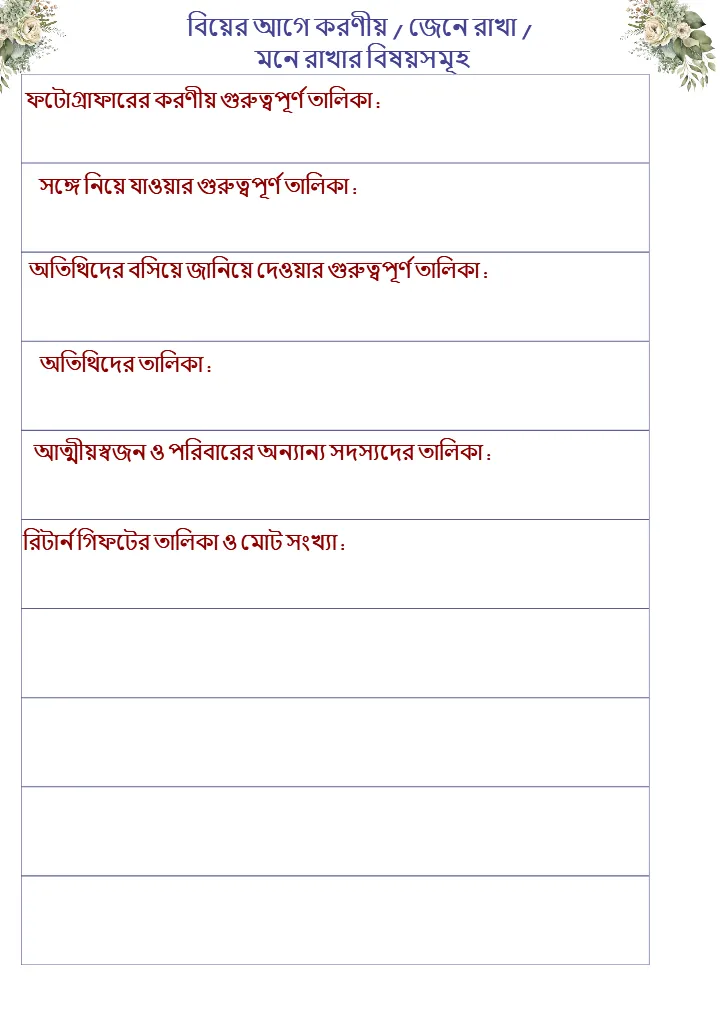 বিয়ের আগে করণীয় / জেনে রাখা /
মনে রাখার বিষয়সমূহ
ফটোগ্রাফারের করণীয় গুরুত্বপূর্ণ তালিকা :
সঙ্গে নিয়ে যাওয়ার গুরুত্বপূর্ণ তালিকা :
অতিথিদের বসিয়ে জানিয়ে দেওয়ার গুরুত্বপূর্ণ তালিকা :
অতিথিদের তালিকা :
আত্মীয়স্বজন ও পরিবারের অন্যান্য সদস্যদের তালিকা :
রিটার্ন গিফটের তালিকা ও মোট সংখ্যা :